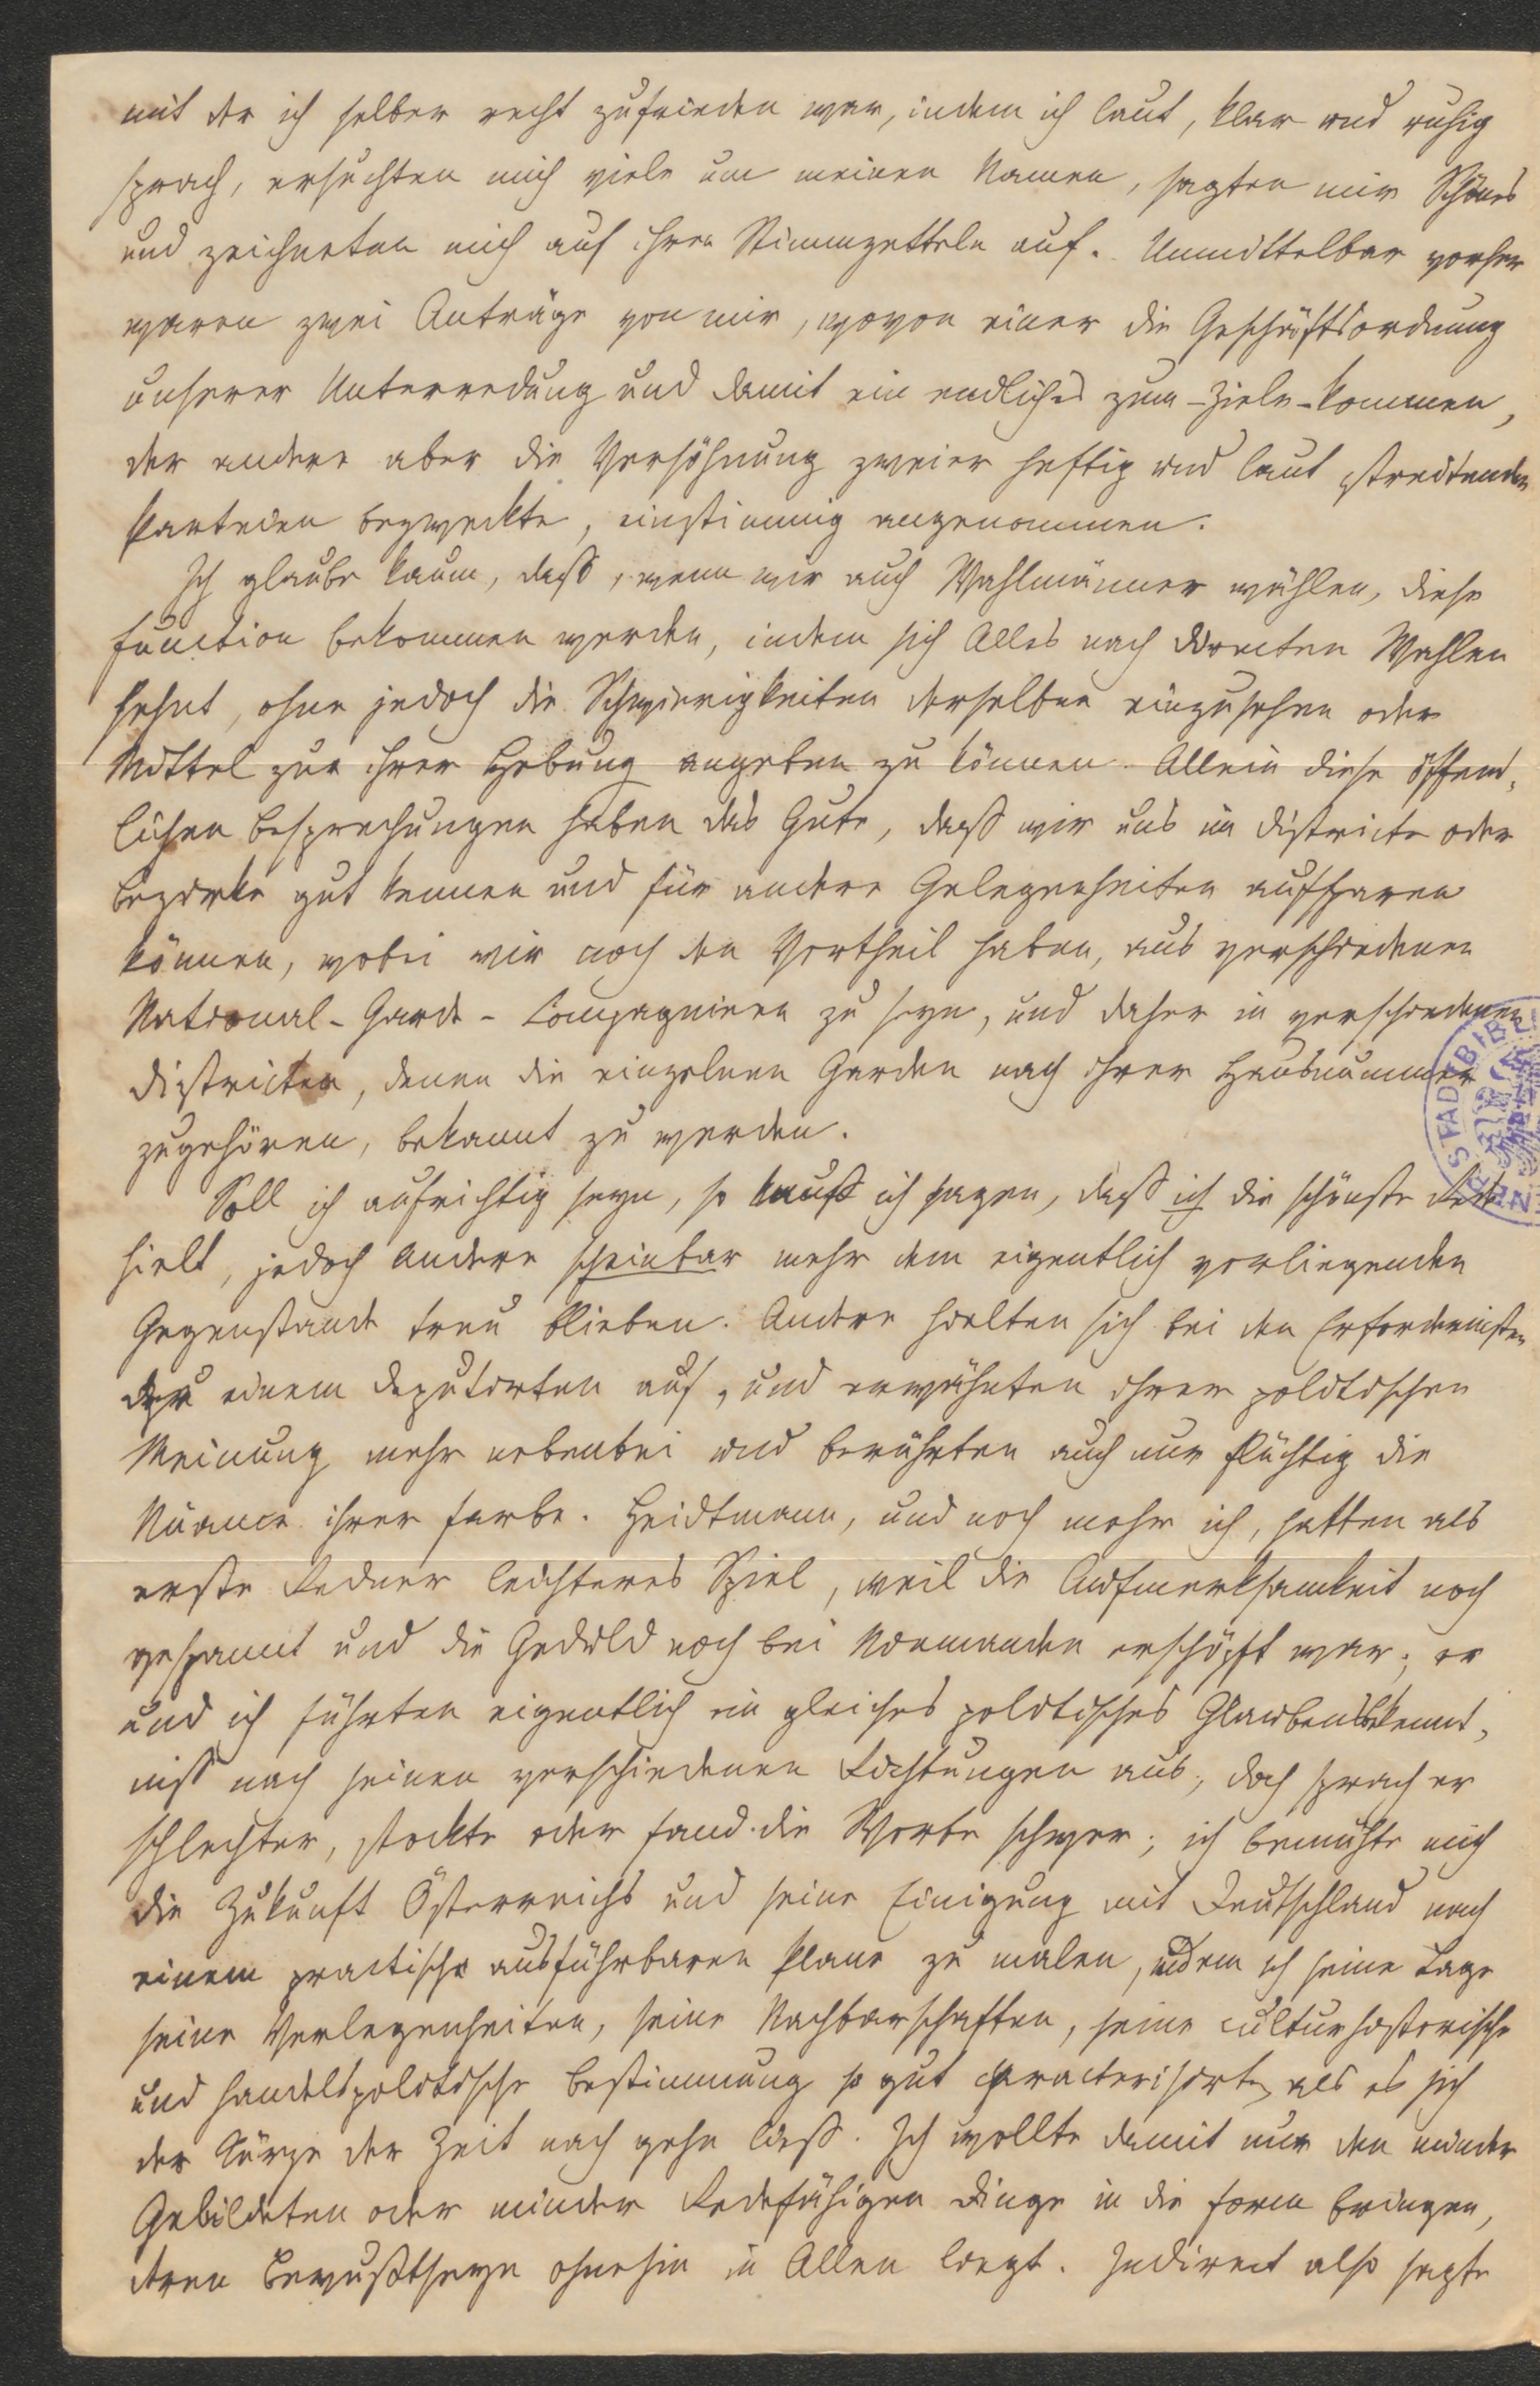 mit der ich selber recht zufrieden war, indem ich laut, klar und ruhig
sprach, ersuchten mich viele um meinen Namen, sagten mir Schönes
und zeichneten mich auf ihren Stimmzetteln auf. Unmittelbar vorher
waren zwei Anträge von mir, wovon einer die Geschäftsordnung
unserer Unterredung und damit ein endliches zum-Ziele-kommen,
der andere aber die Versöhnung zweier heftig und laut streitenden
Parteien bezweckte, einstimmig angenommen.
Ich glaube kaum, daß, wenn wir auch Wahlmänner wählen, diese
Function bekommen werden, indem sich Alles nach directen Wahlen
sehnt, ohne jedoch die Schwierigkeiten derselben einzusehen oder
Mittel zur ihrer Hebung angeben zu können. Allein diese öffent-
lichen Besprechungen haben das Gute, daß wir uns im Districte oder
Bezirke gut kennen und für andere Gelegenheiten aufsparen
können, wobei wir noch den Vortheil haben, aus verschiedenen
National-Garde-Compagnieen zu seyn, und daher in verschiedenen
Districten, denen die einzelnen Garden nach ihrer Hausnummer
zugehören, bekannt zu werden.
STADTBIB
Soll ich aufrichtig seyn, so muß ich sagen, daß ich die schönste Rede
hielt, jedoch Andere scheinbar mehr dem eigentlich vorliegenden
Gegenstande treu blieben. Andere hielten sich bei den Erfordernissen
zu einem Deputirten auf, und erwähnten ihrer politischen
Meinung mehr nebenbei und berührten auch nur flüchtig die
Nüance ihrer Farbe. Heidtmann, und noch mehr ich, hatten als
erste Redner leichteres Spiel, weil die Aufmerksamkeit noch
gespannt und die Geduld noch bei Niemanden erschöpft war; er
und ich führten eigentlich ein gleiches politisches Glaubensbekennt-
niß nach seinen verschiedenen Richtungen aus, doch sprach er
schlechter, stockte oder fand die Worte schwer; ich bemühte mich
die Zukunft Österreichs und seine Einigung mit Deutschland nach
einem practisch ausführbaren Plane zu malen, indem ich seine Lage
seine Verlegenheiten, seine Nachbarschaften, seine culturhistorische
und handelspolitische Bestimmung so gut characterisirte, als es sich
der Kürze der Zeit nach gehn ließ. Ich wollte damit nur den minder
Gebildeten oder minder Redefähigen Dinge in die Form bringen,
deren Bewußtseyn ohnehin in Allen liegt. Indirect also sagte